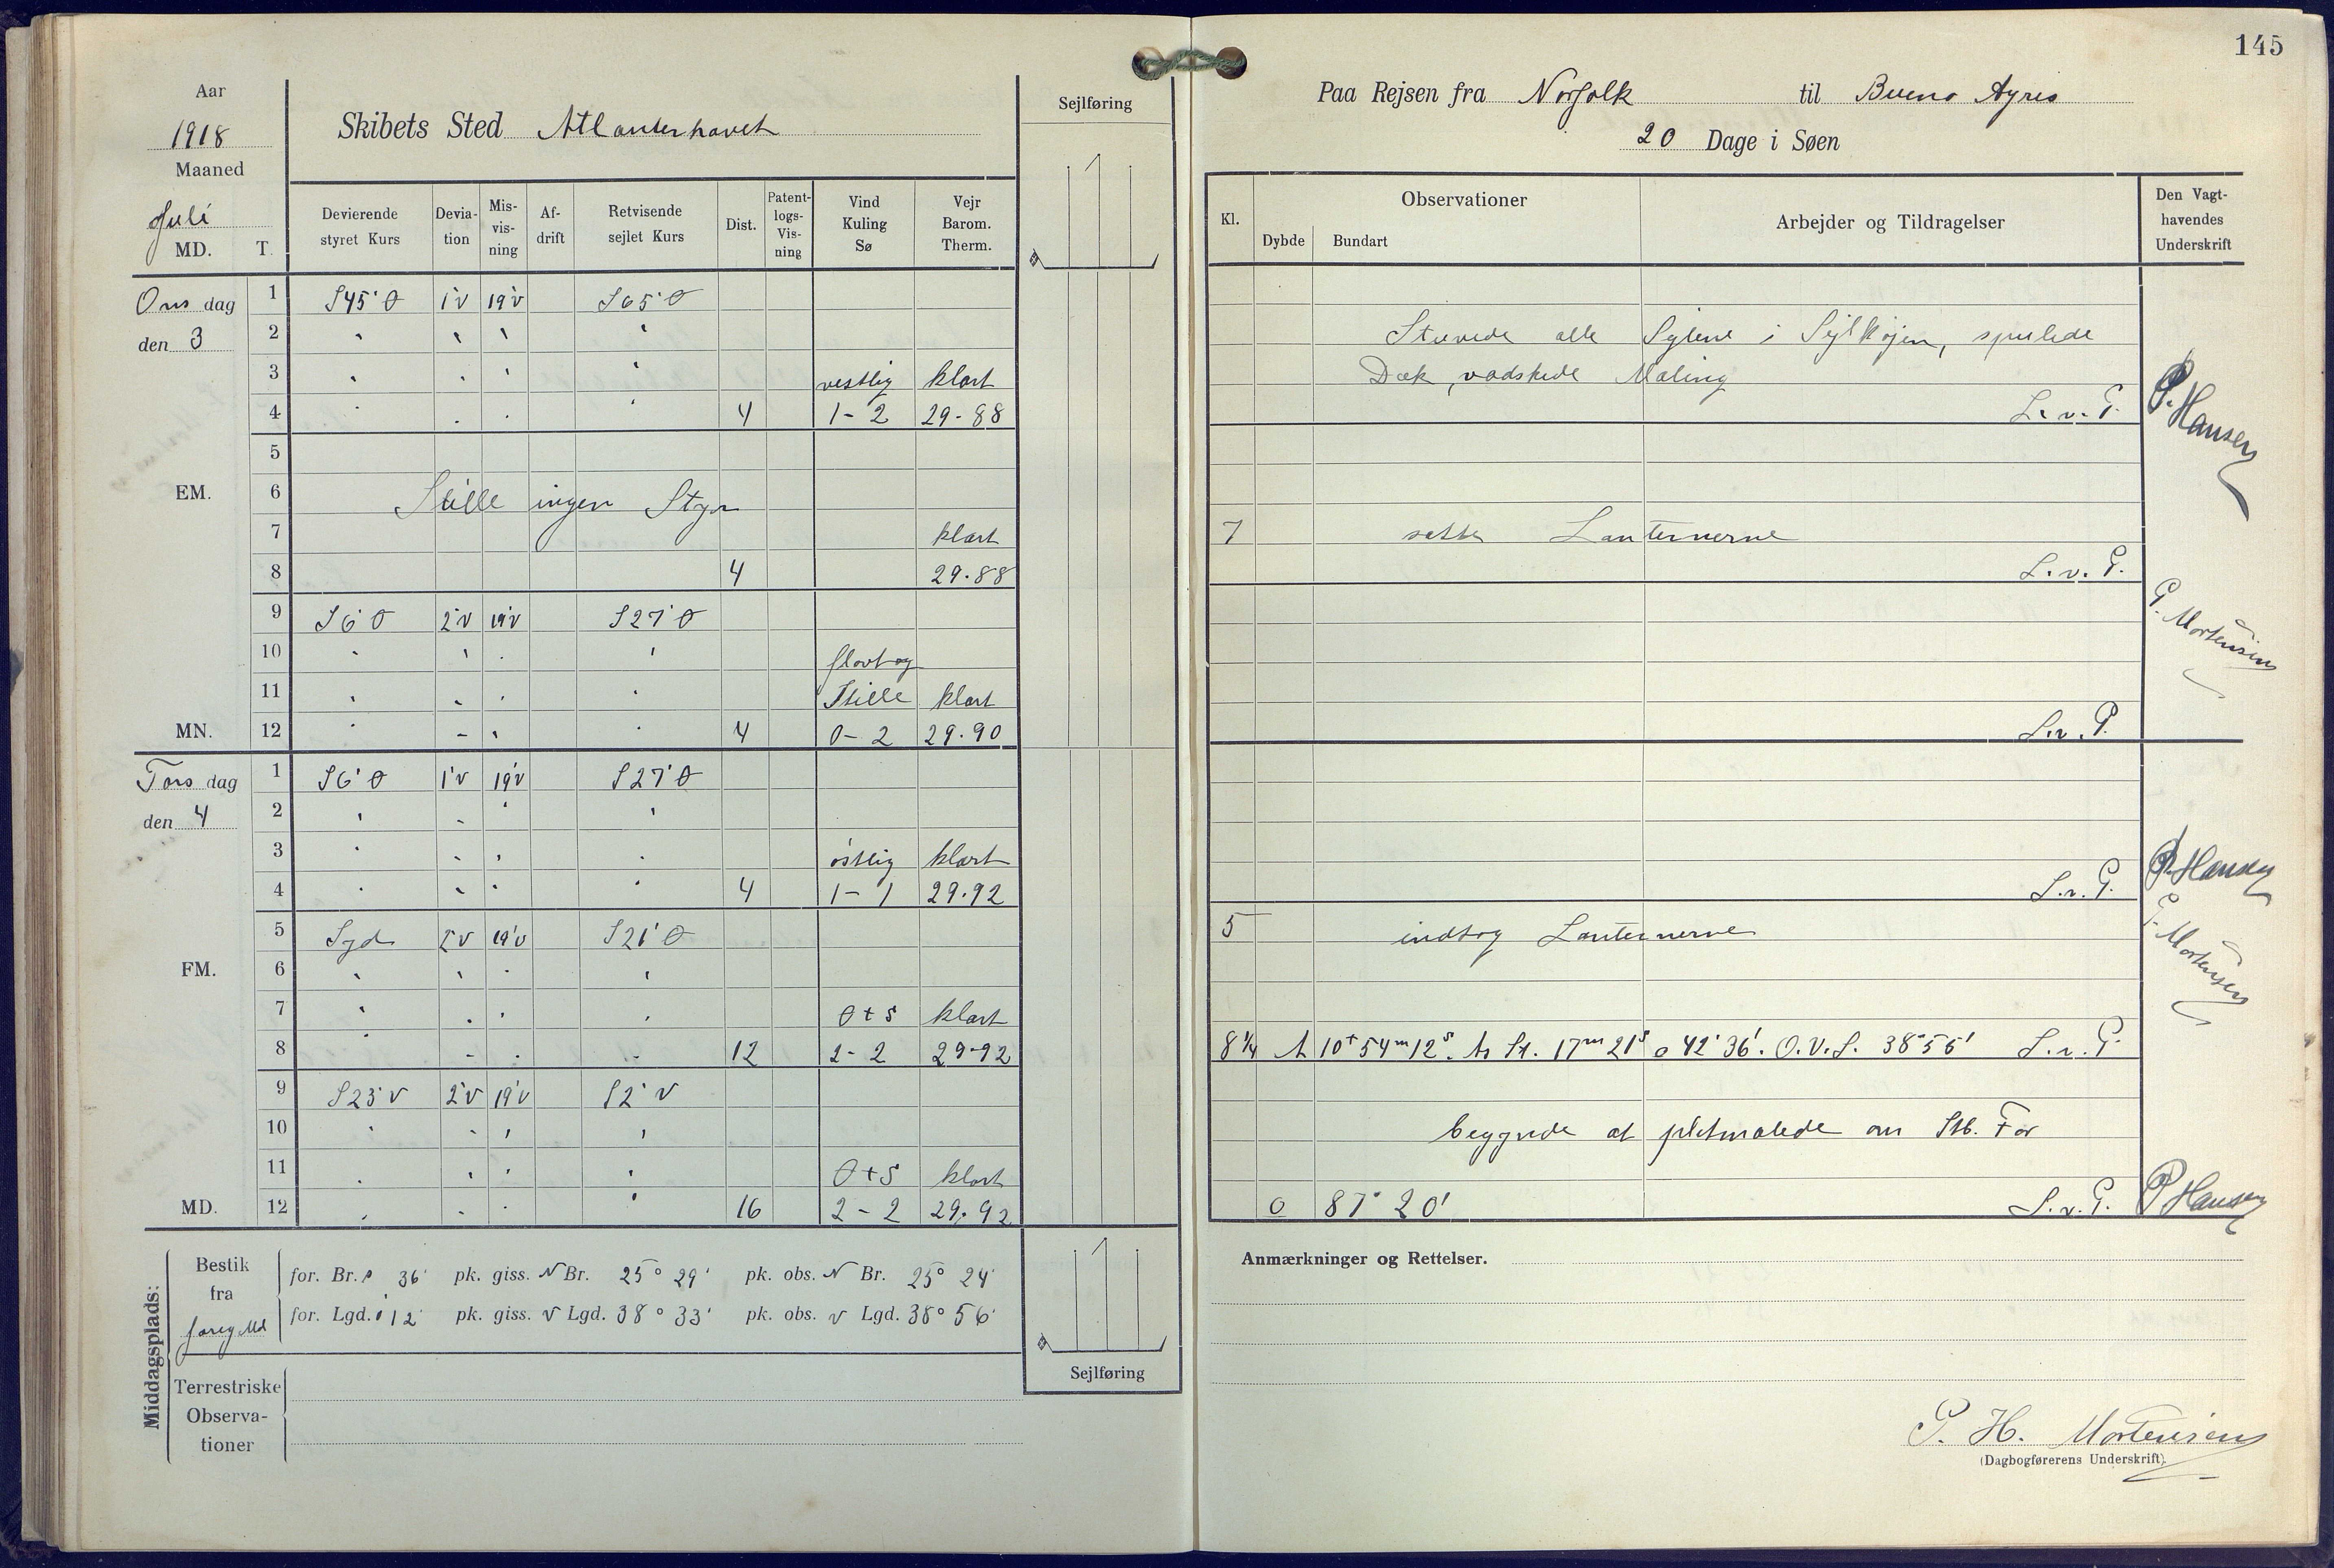 145
Aar
1918
Maaned
Juli
MD. T.
Skibets Sted Atlanterhavet
Sejlføring
Devierende styret Kurs
Deviation
Misvisning
Afdrift
Retvisende sejlet Kurs
Dist.
Patentlogs-Visning
Vind Kuling Sø
Vejr Barom. Therm.
Ons dag 1 S45°O 1°V 19°V S65°O
den 3 2 " " " "
3 " " " " vestlig klart
4 " " " " 4 1-2 29.88
5
EM. 6 Stille ingen Styr
7 klart
8 4 29.88
9 S6°O 2°V 19°V S27°O
10 " " " " flovt og
11 " " " " Stille klart
MN. 12 " " " " 4 0-2 29.90
Tors dag 1 S6°O 1°V 19°V S27°O
den 4 2 " " " "
3 " " " " østlig klart
4 " " " " 4 1-1 29.92
5 Syd 2°V 19°V S21°O
FM. 6 " " " "
7 " " " " OtS klart
8 " " " " 12 2-2 29-92
9 S23°V 2°V 19°V S2°V
10 " " " "
11 " " " " OtS klart
MD. 12 " " " " 16 2-2 29.92
Middagsplads:
Bestik fra foreg Md
for. Br. 36' pk. giss. N Br. 25° 29' pk. obs. N Br. 25° 24'
for. Lgd. 12' pk. giss. V Lgd. 38° 33' pk. obs. V Lgd. 38° 56'
Terrestriske Observationer
Sejlføring
Paa Rejsen fra Norfolk til Bueno Ayres
20 Dage i Søen
Kl.
Observationer
Dybde Bundart
Arbejder og Tildragelser
Den Vagthavendes Underskrift
Stuvede alle Sejlene i Sejlkøjen, spulede
Dæk, vadskede Maling
L.v.P. P. Hansen
7 satte Lanternerne
L.v.P. P. Mortensen
L.v.P.
L.v.P. P. Hansen
5 indtog Lanternerne
P. Mortensen
8 1/4 A 10t 54m 12s. As St. 17m 21s o 42° 36'. O.V.L. 38°56' L.v.P.
begynde at pletmalede om Stb. For
o 87° 20' L.v.P. P Hansen
Anmærkninger og Rettelser.
P. H. Mortensen
(Dagbogførerens Underskrift).